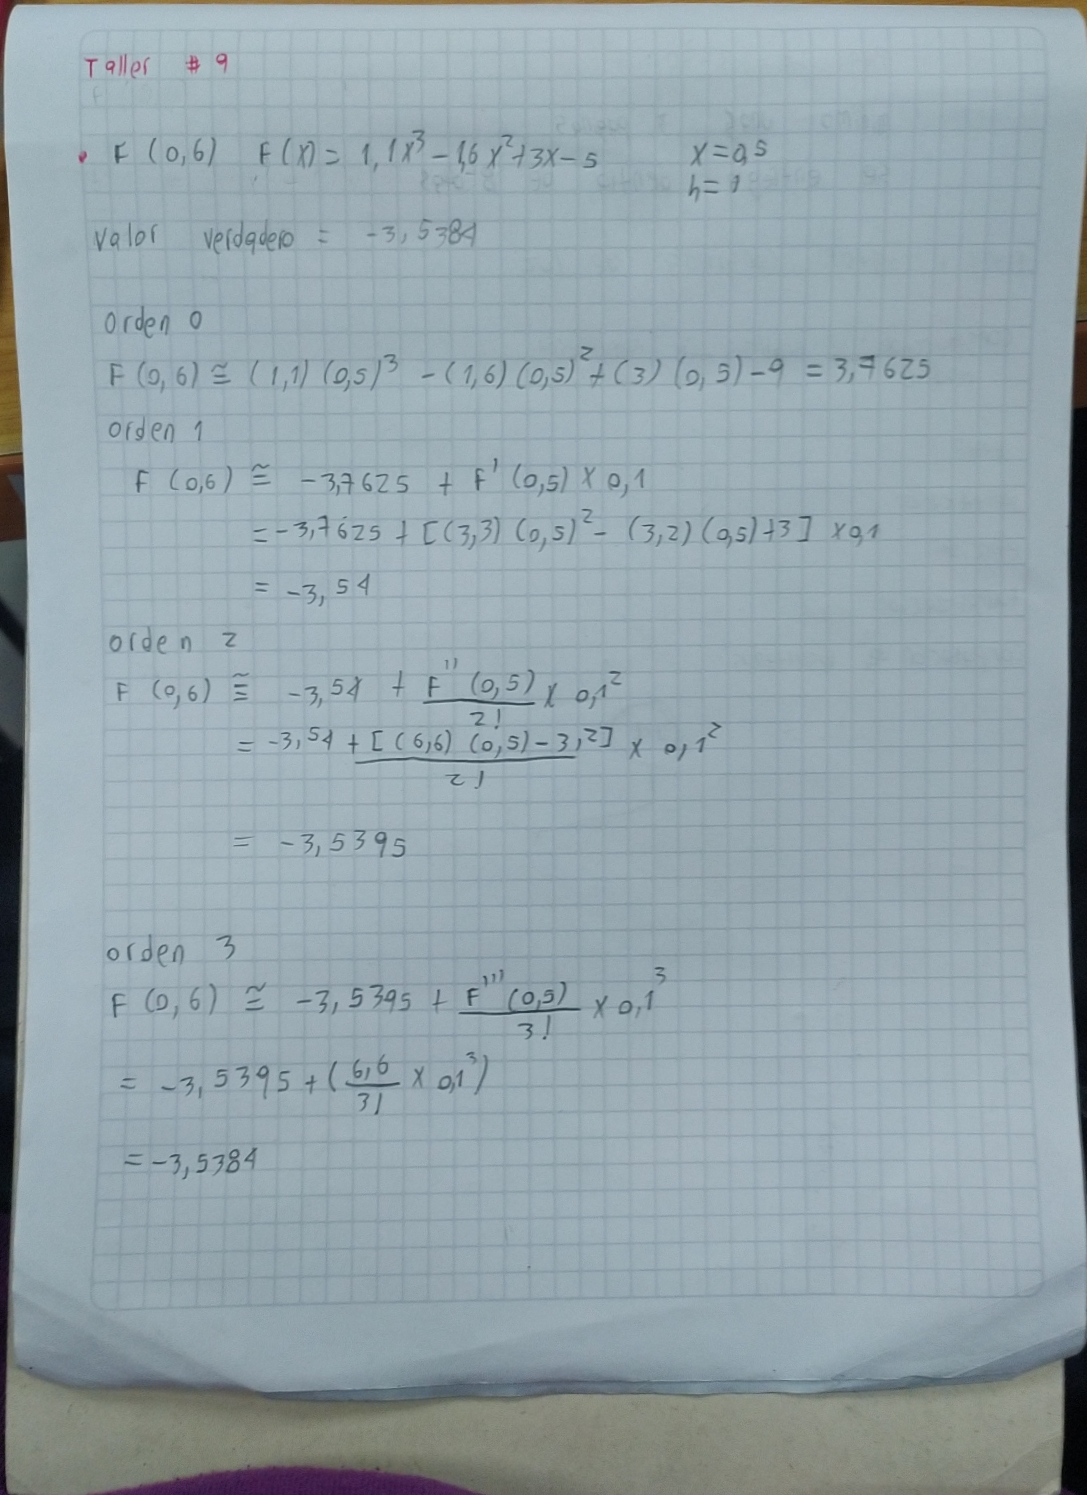 Taller # 9
• F (0,6) F(x) = 1,1x³ - 1,6x² + 3x - 5 x = 0,5
h = 1
valor verdadero = -3,5384
orden 0
F (0,6) ≅ (1,1) (0,5)³ - (1,6) (0,5)² + (3) (0,5) - 9 = 3,7625
orden 1
F (0,6) ≅ -3,7625 + F' (0,5) x 0,1
= -3,7625 + [(3,3) (0,5)² - (3,2) (0,5) + 3] x 0,1
= -3,54
orden 2
F (0,6) ≅ -3,54 + F'' (0,5) / 2! x 0,1²
= -3,54 + [(6,6) (0,5) - 3,2] / 2! x 0,1²
= -3,5395
orden 3
F (0,6) ≅ -3,5395 + F''' (0,5) / 3! x 0,1³
= -3,5395 + (6,6 / 3! x 0,1³)
= -3,5384